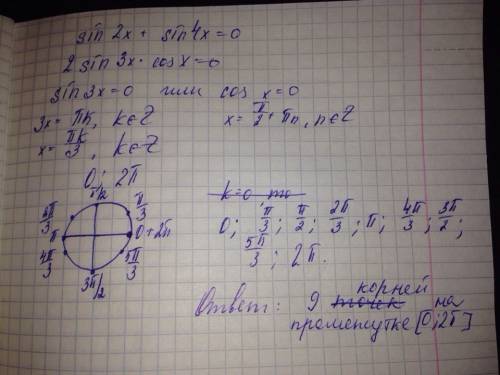 sin 2x + sin 4x = 0
2 sin 3x · cos x = 0
sin 3x = 0 или cos x = 0
3x = πk, k ∈ Z x = π/2 + πn, n ∈ Z
x = πk/3, k ∈ Z
0; 2π
π/2
2π/3 π/3
π 0+2π
4π/3 5π/3
3π/2
k=0, то
0; π/3; π/2; 2π/3; π; 4π/3; 3π/2;
5π/3; 2π.
Ответ: 9 точек корней на
промежутке [0;2π]